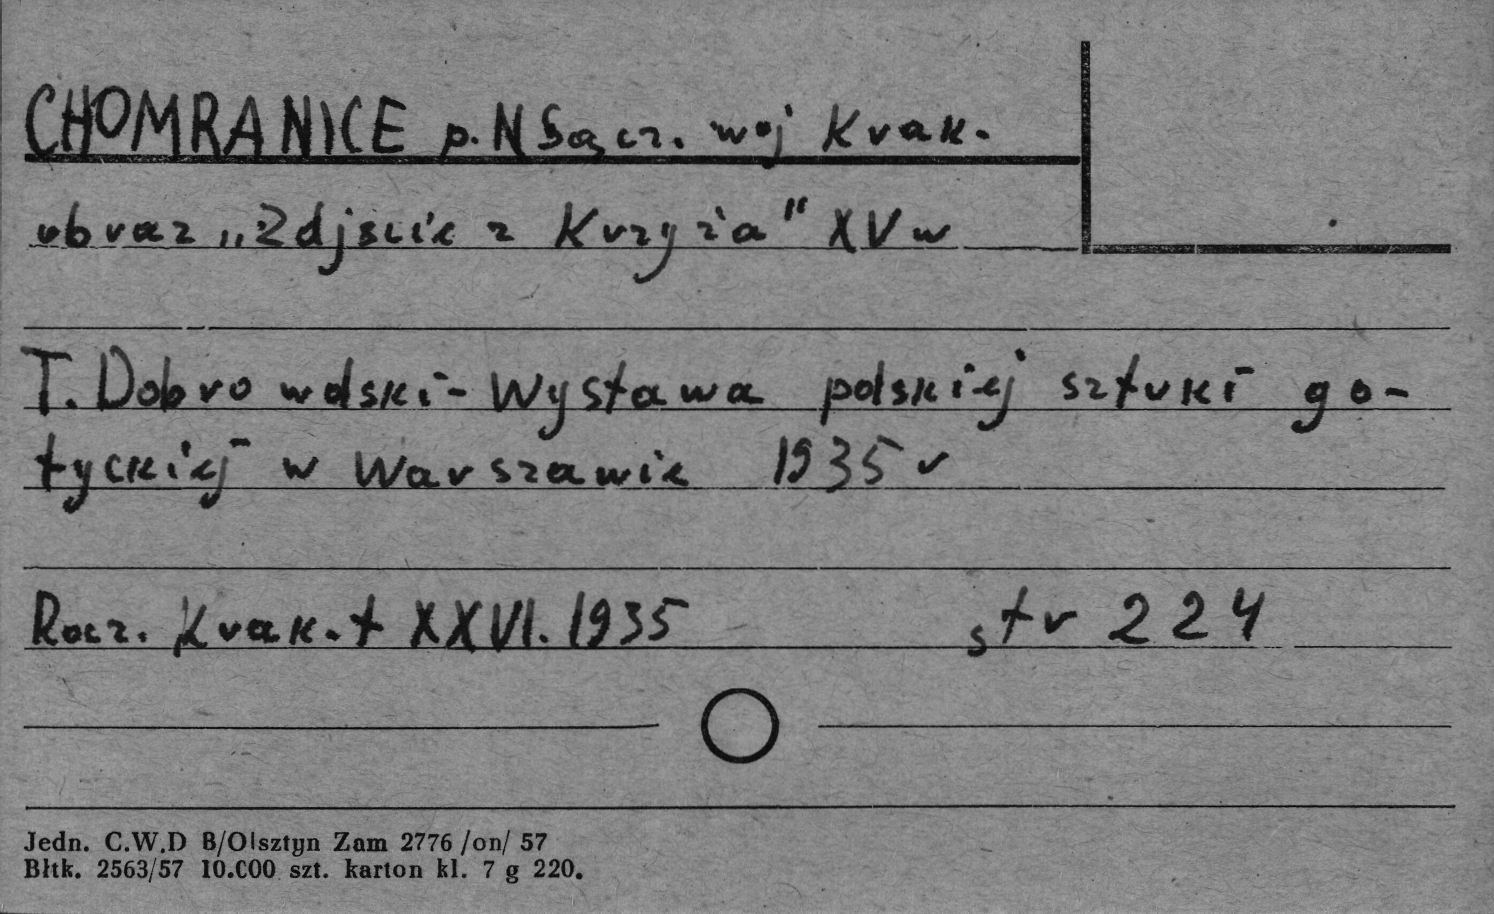 CHOMRANICE p. N Sącz. woj Krak.
obraz „Zdjscie z Krzyża" XV w
T. Dobrowolski - Wystawa polskiej sztuki go-
tyckiej w Warszawie 1935 r
Rocz. Krak. t XXVI. 1935 str 224
Jedn. C.W.D B/Olsztyn Zam 2776 /on/ 57
Błtk. 2563/57 10.000 szt. karton kl. 7 g 220.